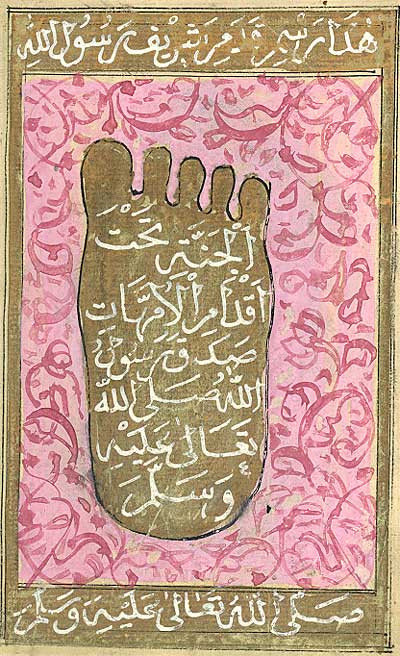 هذا رسم قدم شريف رسول الله
الْجَنَّةِ تَحْتَ
اَقْدَامِ الْاُمَّهَاتِ
صَدَقَ رَسُولُ
اللهُ صَلَى الله
تَعَالَى عَلَيْهِ
وَسَلَّمَ
صَلَى اللهُ تَعَالَى عَلَيْهِ وَسَلَّمَ